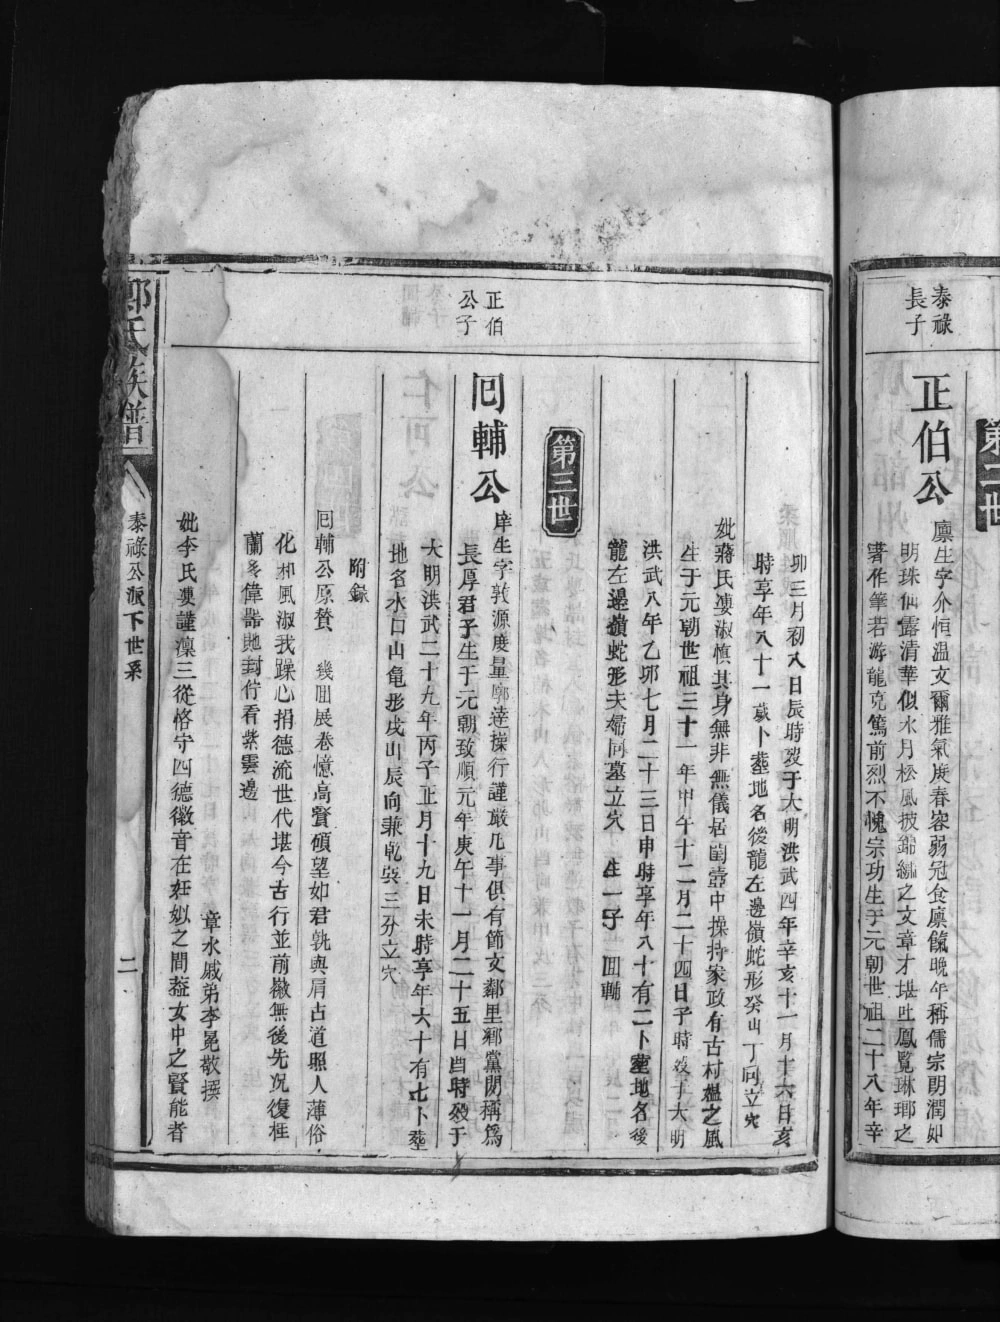 第二世
泰祿
長子
正伯公
廩生字介恒温文爾雅氣度春容弱冠食廩餼晚年稱儒宗朗潤如
明珠仙露清華似水月松風披錦繡之文章才堪吐鳳覽琳瑯之
著作筆若游龍克篤前烈不愧宗功生于元朝世祖二十八年辛
卯三月初八日辰時歿于大明洪武四年辛亥十一月十六日亥
時享年八十一歲卜塟地名後龍左邊嶺蛇形癸山丁向立穴
妣蔣氏淒淑慎其身無非無儀居閨壼中操持家政有古村媪之風
生于元朝世祖三十一年甲午十二月二十四日子時歿于大明
洪武八年乙卯七月二十三日申時享年八十有二卜塟地名後
龍左邊嶺蛇形夫婦同墓立穴 生一子 囘輔
第三世
正伯
公子
囘輔公
庠生字敦源度量廓達操行謹嚴凡事俱有節文鄰里鄉黨閧稱爲
長厚君子生于元朝致順元年庚午十一月二十五日酉時歿于
大明洪武二十九年丙子正月十九日未時享年六十有七卜塟
地名水口山龜形戌山辰向兼乾巽三分立穴
附錄
囘輔公原贊 幾囬展卷憶高賢碩望如君孰與肩占道照人薄俗
化和風淑我躁心捐德流世代堪今古行並前徽無後先况復桂
蘭多偉器貤封佇看紫雲邊
章水戚弟李冕敬撰
妣李氏淒謹凜三從恪守四德徽音在妊姒之間葢女中之賢能者
郭氏族譜
泰祿公派下世系
二